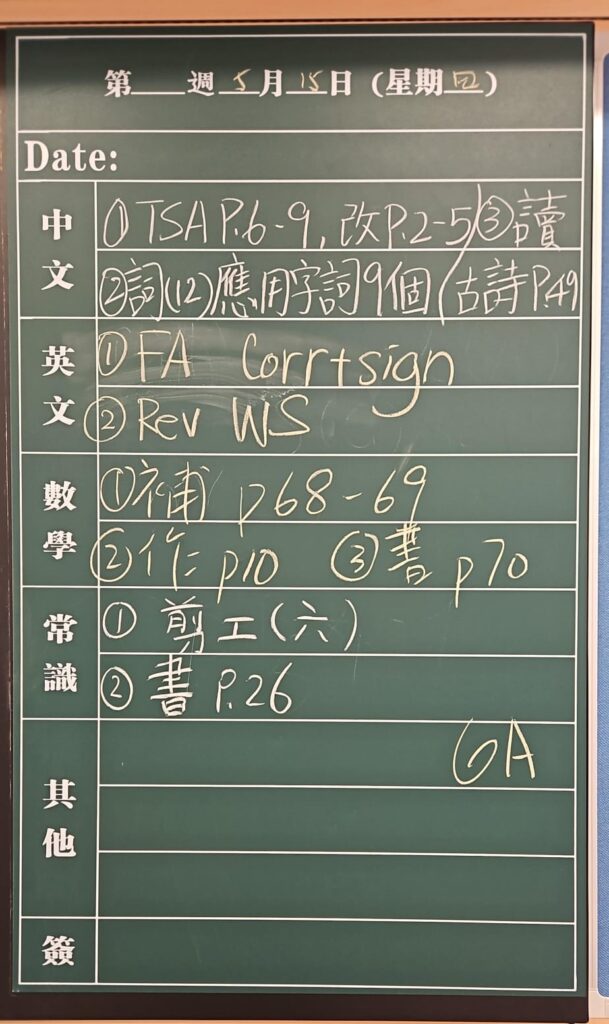 第___週 5月 15日 (星期四)
Date:
中文
① TSA P.6-9, 改P.2-5 ③讀
②詞(12)應用字詞9個 古詩P.49
英文
① FA Corr+sign
② Rev WS
數學
①補 p68-69
②作二 p10 ③書 p70
常識
① 剪工(六)
② 書 P.26
6A
其他
簽